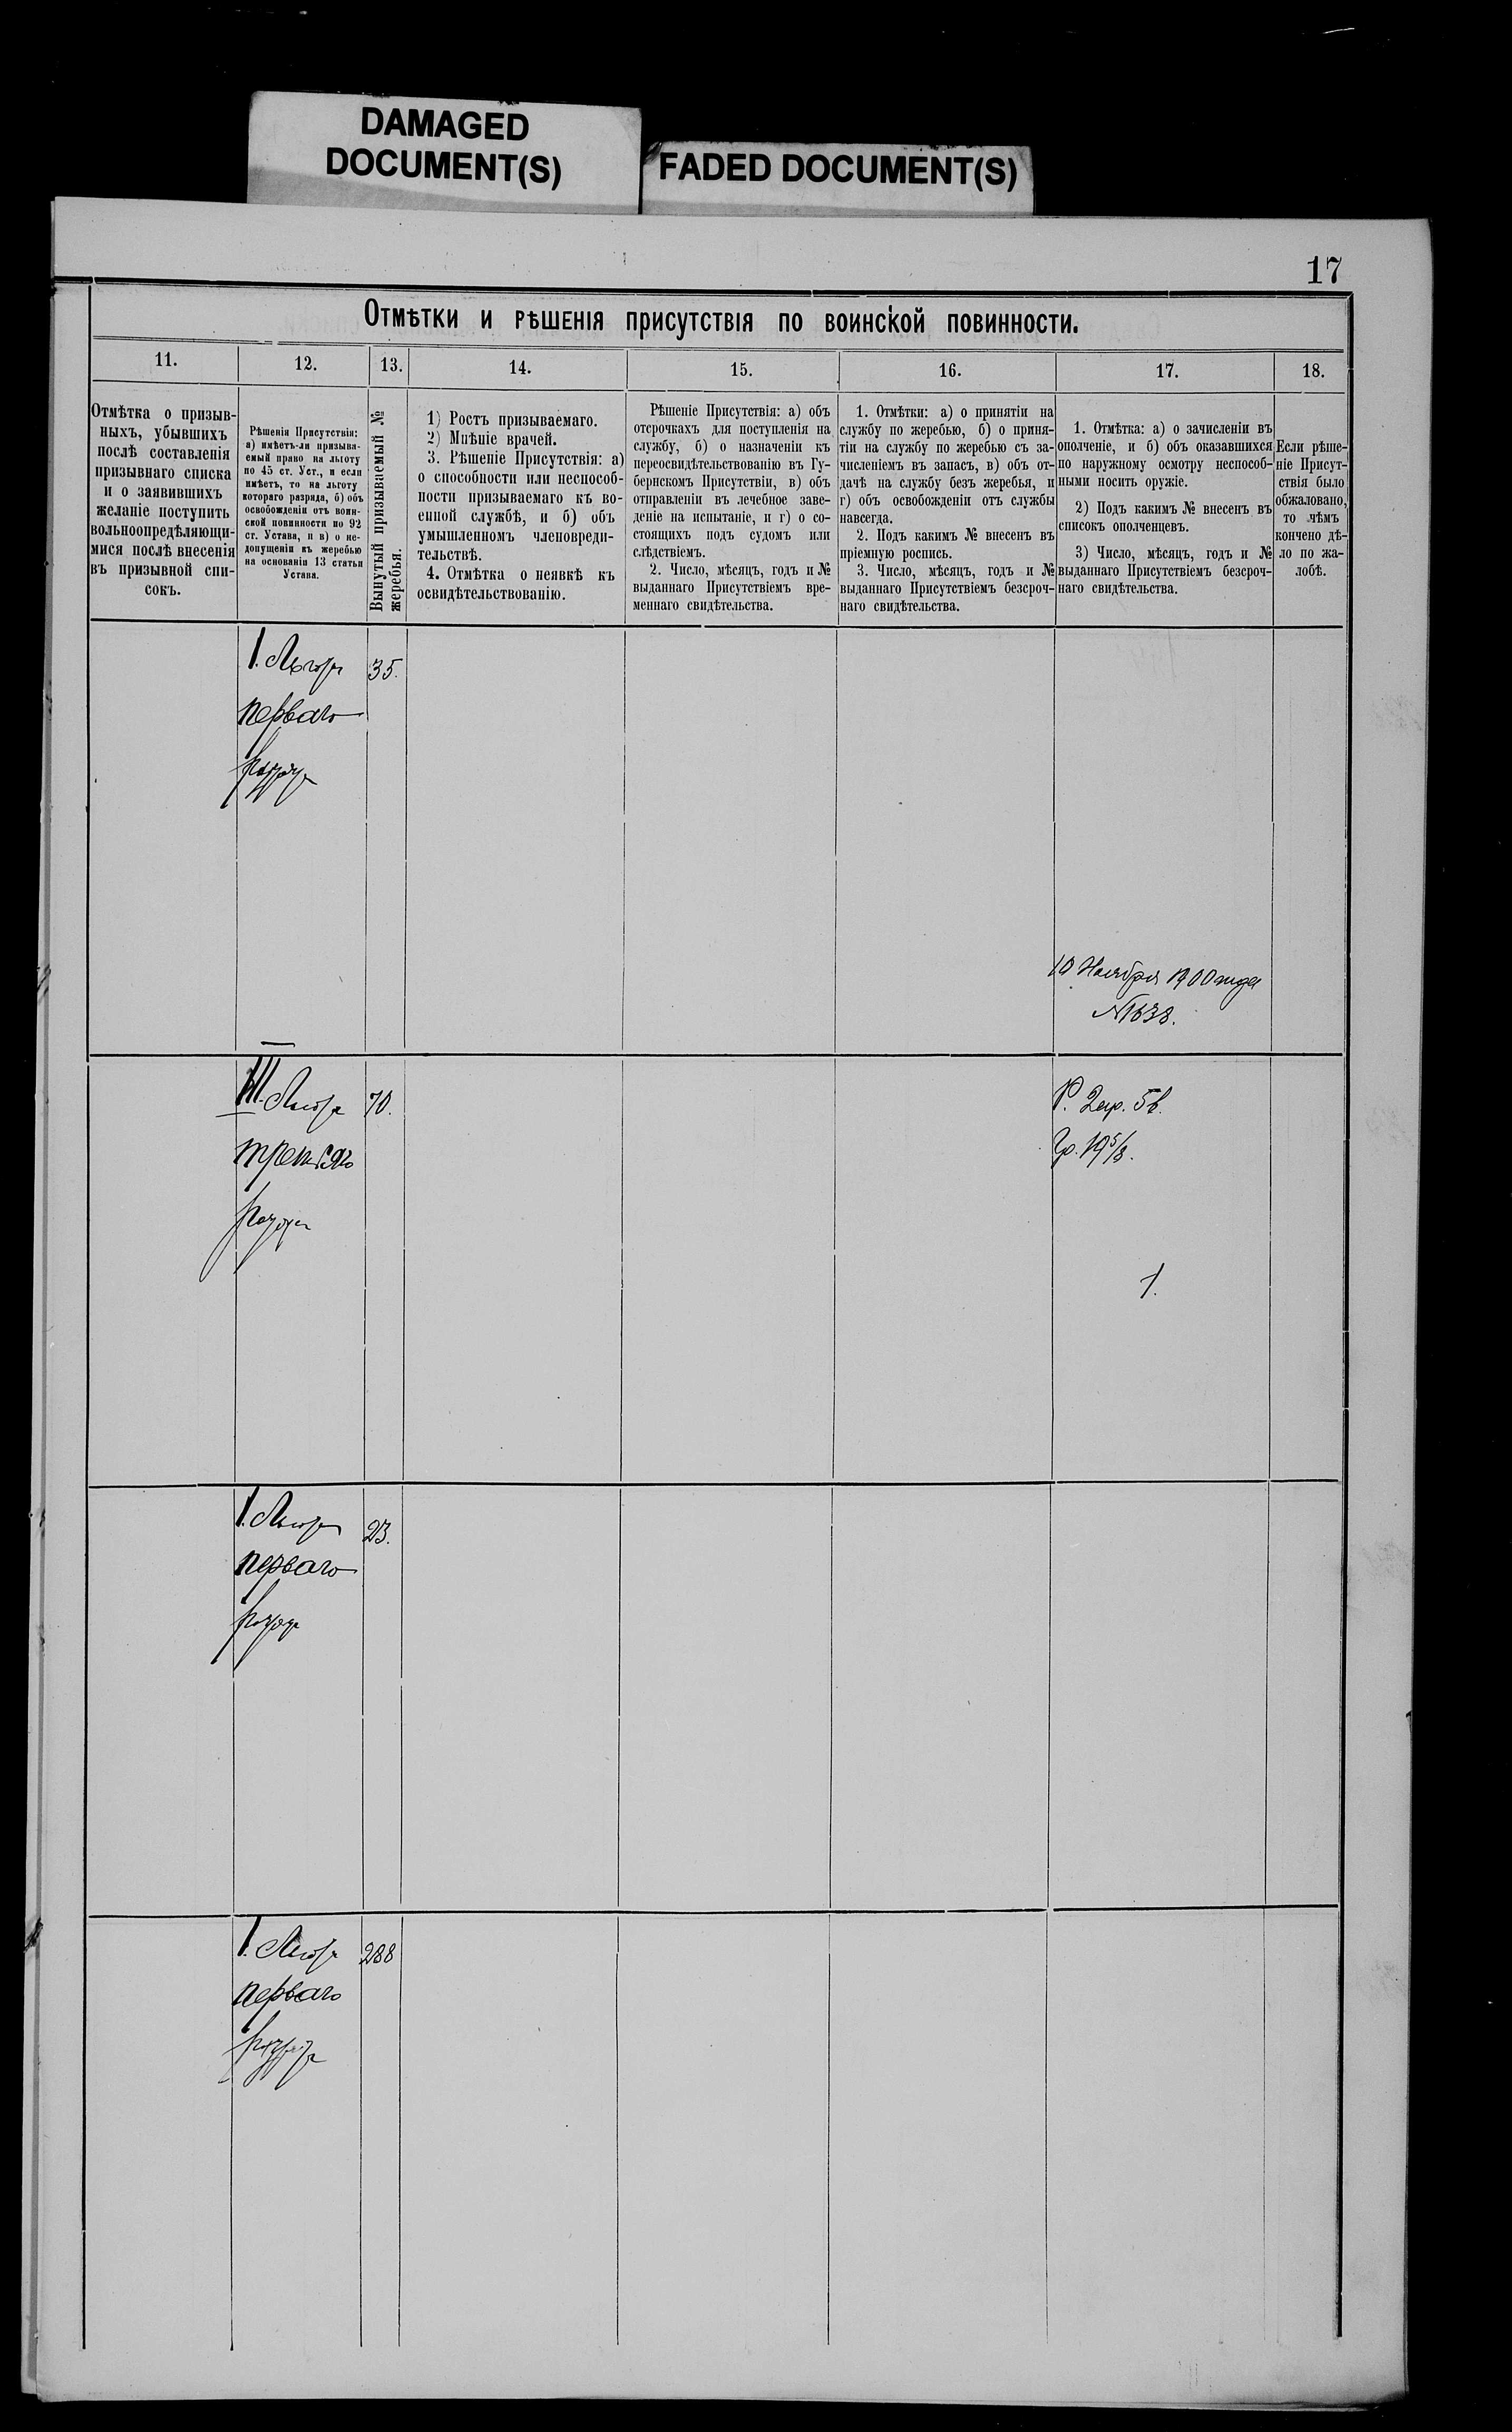 DAMAGED
DOCUMENT(S)
FADED DOCUMENT(S)
17
Отмѣтки и рѣшенія присутствія по воинской повинности.
11.
12.
13.
14.
15.
16.
17.
18.
Отмѣтка о призыв-
ныхъ, убывшихъ
послѣ составленія
призывнаго списка
и о заявившихъ
желаніе поступить
вольноопредѣляющи-
мися послѣ внесенія
въ призывной спи-
сокъ.
Рѣшенія Присутствія:
а) имѣетъ-ли призыва-
емый право на льготу
по 45 ст. Уст., и если
имѣетъ, то на льготу
котораго разряда, б) объ
освобожденіи отъ воин-
ской повинности по 92
ст. Устава, и в) о не-
допущеніи къ жеребью
на основаніи 13 статьи
Устава.
Вынутый призываемый №
жеребья.
1) Ростъ призываемаго.
2) Мнѣніе врачей.
3. Рѣшеніе Присутствія: а)
о способности или неспособ-
ности призываемаго къ во-
енной службѣ, и б) объ
умышленномъ членовреди-
тельствѣ.
4. Отмѣтка о неявкѣ къ
освидѣтельствованію.
Рѣшеніе Присутствія: а) объ
отсрочкахъ для поступленія на
службу, б) о назначеніи къ
переосвидѣтельствованію въ Гу-
бернскомъ Присутствіи, в) объ
отправленіи въ лечебное заве-
деніе на испытаніе, и г) о со-
стоящихъ подъ судомъ или
слѣдствіемъ.
2. Число, мѣсяцъ, годъ и №
выданнаго Присутствіемъ вре-
меннаго свидѣтельства.
1. Отмѣтки: а) о принятіи на
службу по жеребью, б) о приня-
тіи на службу по жеребью съ за-
численіемъ въ запасъ, в) объ от-
дачѣ на службу безъ жеребья, и
г) объ освобожденіи отъ службы
навсегда.
2. Подъ какимъ № внесенъ въ
пріемную роспись.
3. Число, мѣсяцъ, годъ и №
выданнаго Присутствіемъ безсроч-
наго свидѣтельства.
1. Отмѣтка: а) о зачисленіи въ
ополченіе, и б) объ оказавшихся
по наружному осмотру неспособ-
ными носить оружіе.
2) Подъ какимъ № внесенъ въ
списокъ ополченцевъ.
3) Число, мѣсяцъ, годъ и №
выданнаго Присутствіемъ безсроч-
наго свидѣтельства.
Если рѣше-
ніе Присут-
ствія было
обжаловано,
то чѣмъ
кончено дѣ-
ло по жа-
лобѣ.
I. Льгота 35.
перваго
разряда
10 Ноября 1900 года
№1638.
III. Льгота 70.
третьяго
разряда
1.
I. Льгота 23.
перваго
разряда
I. Льгота 288
перваго
разряда